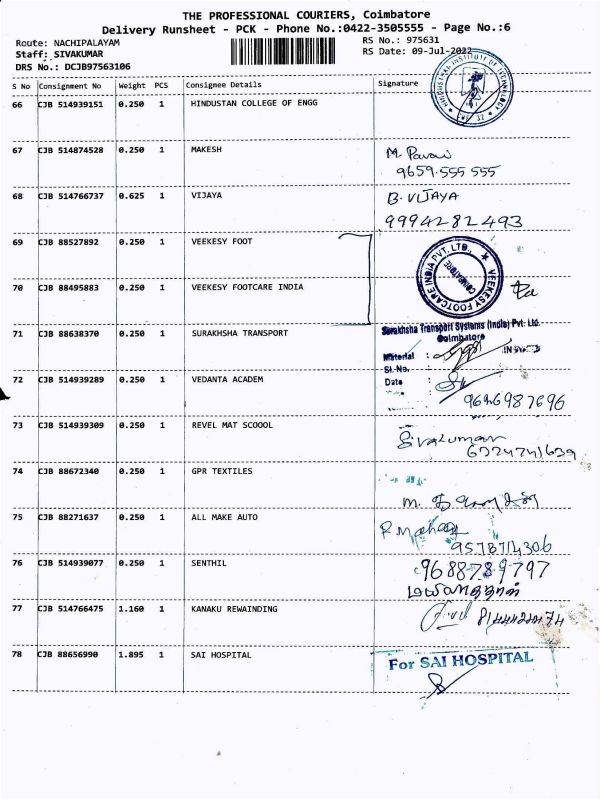 THE PROFESSIONAL COURIERS, Coimbatore
Delivery Runsheet - PCK - Phone No.:0422-3505555 - Page No.:6
Route: NACHIPALAYAM RS No.: 975631
Staff: SIVAKUMAR RS Date: 09-Jul-2022
DRS No.: DCJB97563106
S No Consignment No Weight PCS Consignee Details Signature
HINDUSTHAN INSTITUTE OF TECHNOLOGY
66 CJB 514939151 0.250 1 HINDUSTAN COLLEGE OF ENGG
67 CJB 514874528 0.250 1 MAKESH M. Pavan
9659 555 555
68 CJB 514766737 0.625 1 VIJAYA B. VIJAYA
9994282493
69 CJB 88527892 0.250 1 VEEKESY FOOT
VEEKESY FOOTCARE INDIA PVT. LTD.,
COIMBATORE
70 CJB 88495883 0.250 1 VEEKESY FOOTCARE INDIA
Surakhsha Transport Systems (India) Pvt. Ltd.
Coimbatore
71 CJB 88638370 0.250 1 SURAKHSHA TRANSPORT
Material :
Sl. No. :
Date :
72 CJB 514939289 0.250 1 VEDANTA ACADEM
9696987696
73 CJB 514939309 0.250 1 REVEL MAT SCOOOL Sivakumar
74 CJB 88672340 0.250 1 GPR TEXTILES
75 CJB 88271637 0.250 1 ALL MAKE AUTO
9578714306
76 CJB 514939077 0.250 1 SENTHIL 9688789797
77 CJB 514766475 1.160 1 KANAKU REWAINDING
78 CJB 88656990 1.895 1 SAI HOSPITAL For SAI HOSPITAL